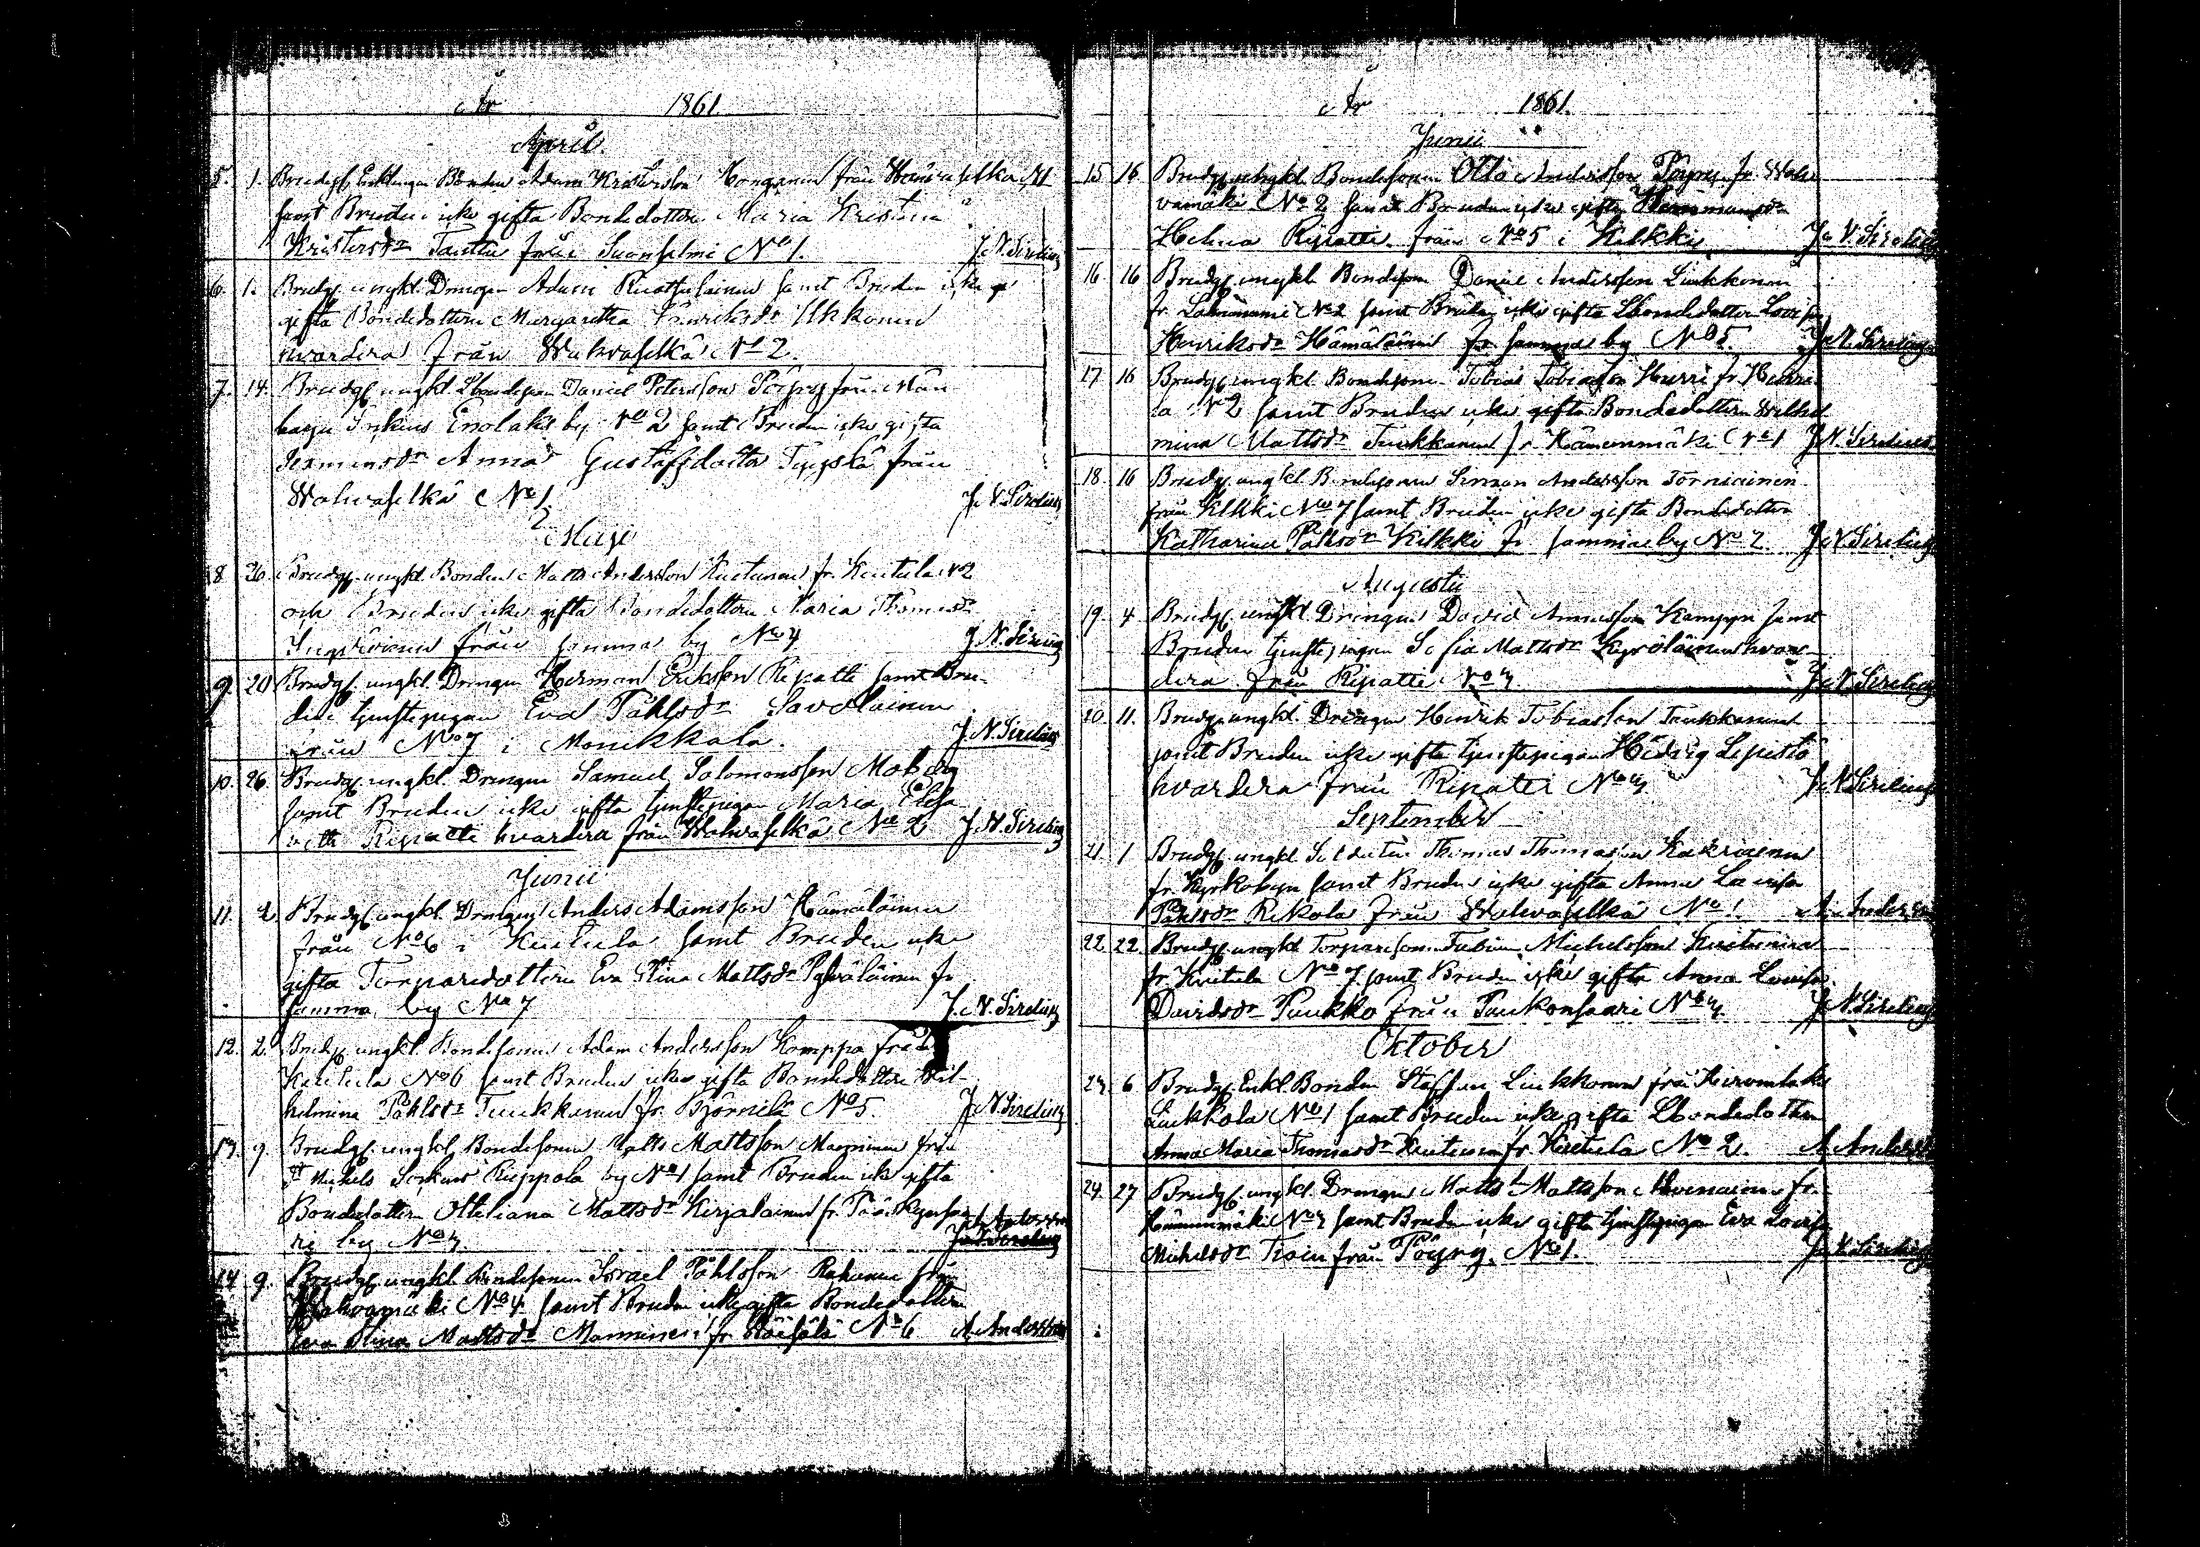 År 1861.
April.
5. 1. Brudg. Enklingen Bonden Adam Kristersson från
samt Bruden icke gifta Bondedottern Maria Kristina
Kristersdr Tanttu från Suonsalmi No 1. J. N. Sirelius
6. 1. Brudg. ungkl. Drengen Adam samt Bruden icke
gifta Bondedottern Margaretha Henriksdr Ukkonen
hvardera från Wahvaselkä No 2.
7. 14. Brudg. ungkl. Bondeson Daniel Petersson Pöyry från Män-
harju Sockens Enolaks by No 2 samt Bruden icke gifta
Anna Gustafsdotter från
Wahvaselkä No 1. J. N. Sirelius
Maji
8. 26. Brudg. ungkl. Bonden Matts Andersson Kuitunen fr. Kuitula No 2
och Bruden icke gifta Bondedottern Maria Thomasdr
från samma by No 4 J. N. Sirelius
9. 20 Brudg. ungkl. Drengen Herman Eriksson Ripatti samt Bru-
den tjenstepigan Eva Påhlsdr Savolainen
från No 7 i Monikkala. J. N. Sirelius
10. 26. Brudg. ungkl. Drengen Samuel Salomonsson Moberg
samt Bruden icke gifta tjenstepigan Maria Elisa-
beth Ripatti hvardera från Wahvaselkä No 2 J. N. Sirelius
Junii
11. 2. Brudg. ungkl. Drengen Anders Adamsson Hämäläinen
från No 6 i Kuitula samt Bruden icke
gifta Torparedottern Eva Stina Mattsdr fr.
samma by No 7 J. N. Sirelius
12. 2. Brudg. ungkl. Bondesonen Adam Andersson Kamppa från
Kuitula No 6 samt Bruden icke gifta Bondedottern Wil-
helmina Påhlsdr Tuukkanen fr. Björnilä No 5. J. N. Sirelius
13. 9. Brudg. ungkl. Bondesonen Matts Mattsson Manninen från
St Michels Sockens by No 1 samt Bruden icke gifta
Bondedottern Ottiliana Mattsdr fr.
ri by No 4.
14. 9. Brudg. ungkl. Bondesonen Israel Påhlsson från
Wahvamäki No 4 samt Bruden icke gifta Bondedottern
Eva Stina Mattsdr Manninen fr. Väisälä No 6 A. Andersson
År 1861.
Junii
15 16 Brudg. ungkl. Bondesonen Otto Andersson Pöyry fr. Wah-
vamäki No 2 samt Bruden icke gifta Hemmansdr
Helena Ripatti från No 5 i Kilkki J. N. Sirelius
16 16 Brudg. ungkl. Bondeson Daniel Andersson Liukkonen
fr. Lahnaniemi No 2 samt Bruden icke gifta Bondedottern Lovisa
Henriksdr Hämäläinen fr. samma by No 5 J. N. Sirelius
17 16 Brudg. ungkl. Bondeson Tobias Tobiasson Hurri fr. Hurri-
la No 2 samt Bruden icke gifta Bondedottern Wilhel-
mina Mattsdr Tuukkanen fr. Hämeenmäki No 1 J. N. Sirelius
18 16 Brudg. ungkl. Bondesonen Simon Andersson Torniainen
från Kilkki No 7 samt Bruden icke gifta Bondedottern
Katharina Påhlsdr Kilkki fr. samma by No 2. J. N. Sirelius
Augusti
19. 4 Brudg. ungkl. Drengen David Kamppi samt
Bruden tjenstepigan Sofia Mattsdr hvar-
dera från Ripatti No 4. J. N. Sirelius
20. 11. Brudg. ungkl. Drengen Henrik Tobiasson Tuukkanen
samt Bruden icke gifta tjenstepigan Hedvig Lepistö
hvardera från Ripatti No 4 J. N. Sirelius
September
21. 1 Brudg. ungkl. Soldaten Thomas Thomasson Kakriainen
fr. Kyrkobyn samt Bruden icke gifta Anna Lovisa
Påhlsdr Rikola från Wahvaselkä No 1. A. Andersson
22. 22. Brudg. ungkl. Torpareson Fabian Michelsson Kuitunen
fr. Kuitula No 7 samt Bruden icke gifta Anna Lovisa
Davidsdr Puukko från Puukonsaari No 4. J. N. Sirelius
Oktober
23. 6 Brudg. Enkl. Bonden Staffan Liukkonen från Hirvensalmi
Liukkola No 1 samt Bruden icke gifta Bondedottern
Anna Maria Thomasdr Kuitunen fr. Kuitula No 2. A. Andersson
24. 27 Brudg. ungkl. Drengen Matts Mattsson fr.
Hämeenmäki No 4 samt Bruden icke gifta tjenstepigan Eva Lovisa
Michelsdr från Pöyry No 1. J. N. Sirelius